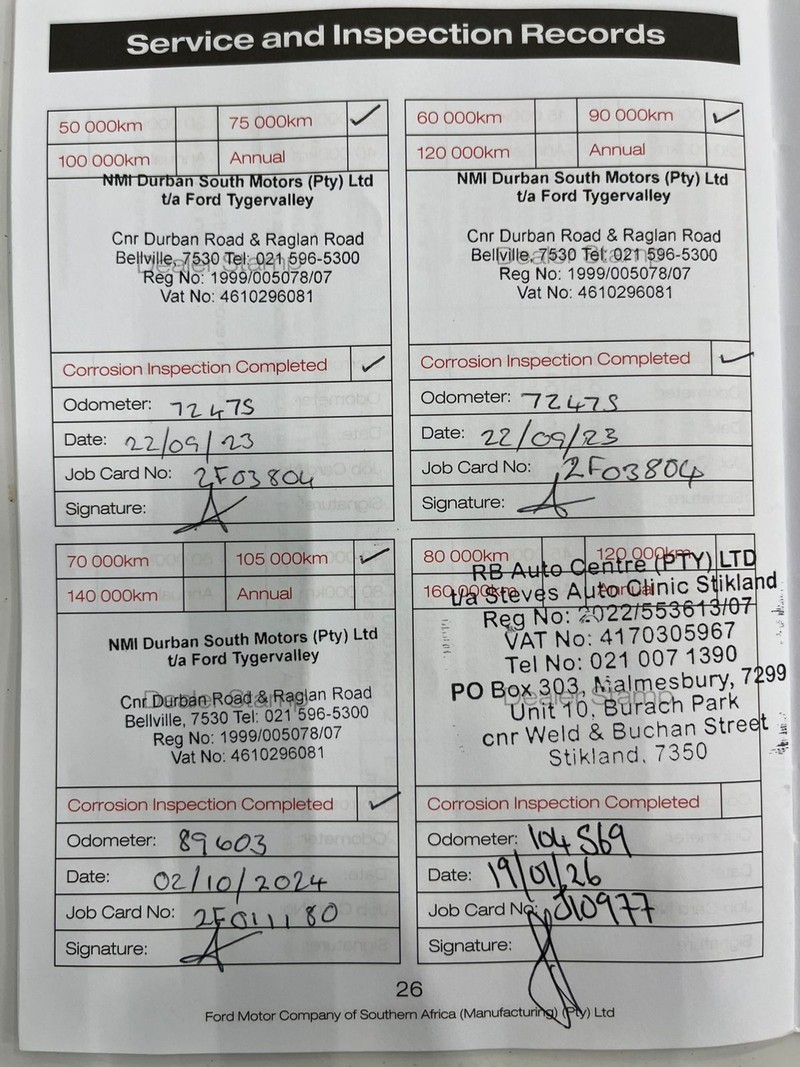 Service and Inspection Records
50 000km 75 000km ✓
100 000km Annual
NMI Durban South Motors (Pty) Ltd
t/a Ford Tygervalley
Cnr Durban Road & Raglan Road
Bellville, 7530 Tel: 021 596-5300
Dealer Stamp
Reg No: 1999/005078/07
Vat No: 4610296081
Corrosion Inspection Completed ✓
Odometer: 72475
Date: 22/09/23
Job Card No: 2F03804
Signature:
60 000km 90 000km ✓
120 000km Annual
NMI Durban South Motors (Pty) Ltd
t/a Ford Tygervalley
Cnr Durban Road & Raglan Road
Bellville, 7530 Tel: 021 596-5300
Dealer Stamp
Reg No: 1999/005078/07
Vat No: 4610296081
Corrosion Inspection Completed ✓
Odometer: 72475
Date: 22/09/23
Job Card No: 2F03804
Signature:
70 000km 105 000km ✓
140 000km Annual
NMI Durban South Motors (Pty) Ltd
t/a Ford Tygervalley
Cnr Durban Road & Raglan Road
Dealer Stamp
Bellville, 7530 Tel: 021 596-5300
Reg No: 1999/005078/07
Vat No: 4610296081
Corrosion Inspection Completed ✓
Odometer: 89603
Date: 02/10/2024
Job Card No: 2F011180
Signature:
80 000km 120 000km
160 000km Annual
RB Auto Centre (PTY) LTD
t/a Steves Auto Clinic Stikland
Reg No: 2022/553613/07
VAT No: 4170305967
Tel No: 021 007 1390
PO Box 303, Malmesbury, 7299
Dealer Stamp
Unit 10, Burach Park
cnr Weld & Buchan Street
Stikland, 7350
Corrosion Inspection Completed
Odometer: 104569
Date: 19/01/26
Job Card No: J10977
Signature:
26
Ford Motor Company of Southern Africa (Manufacturing) (Pty) Ltd